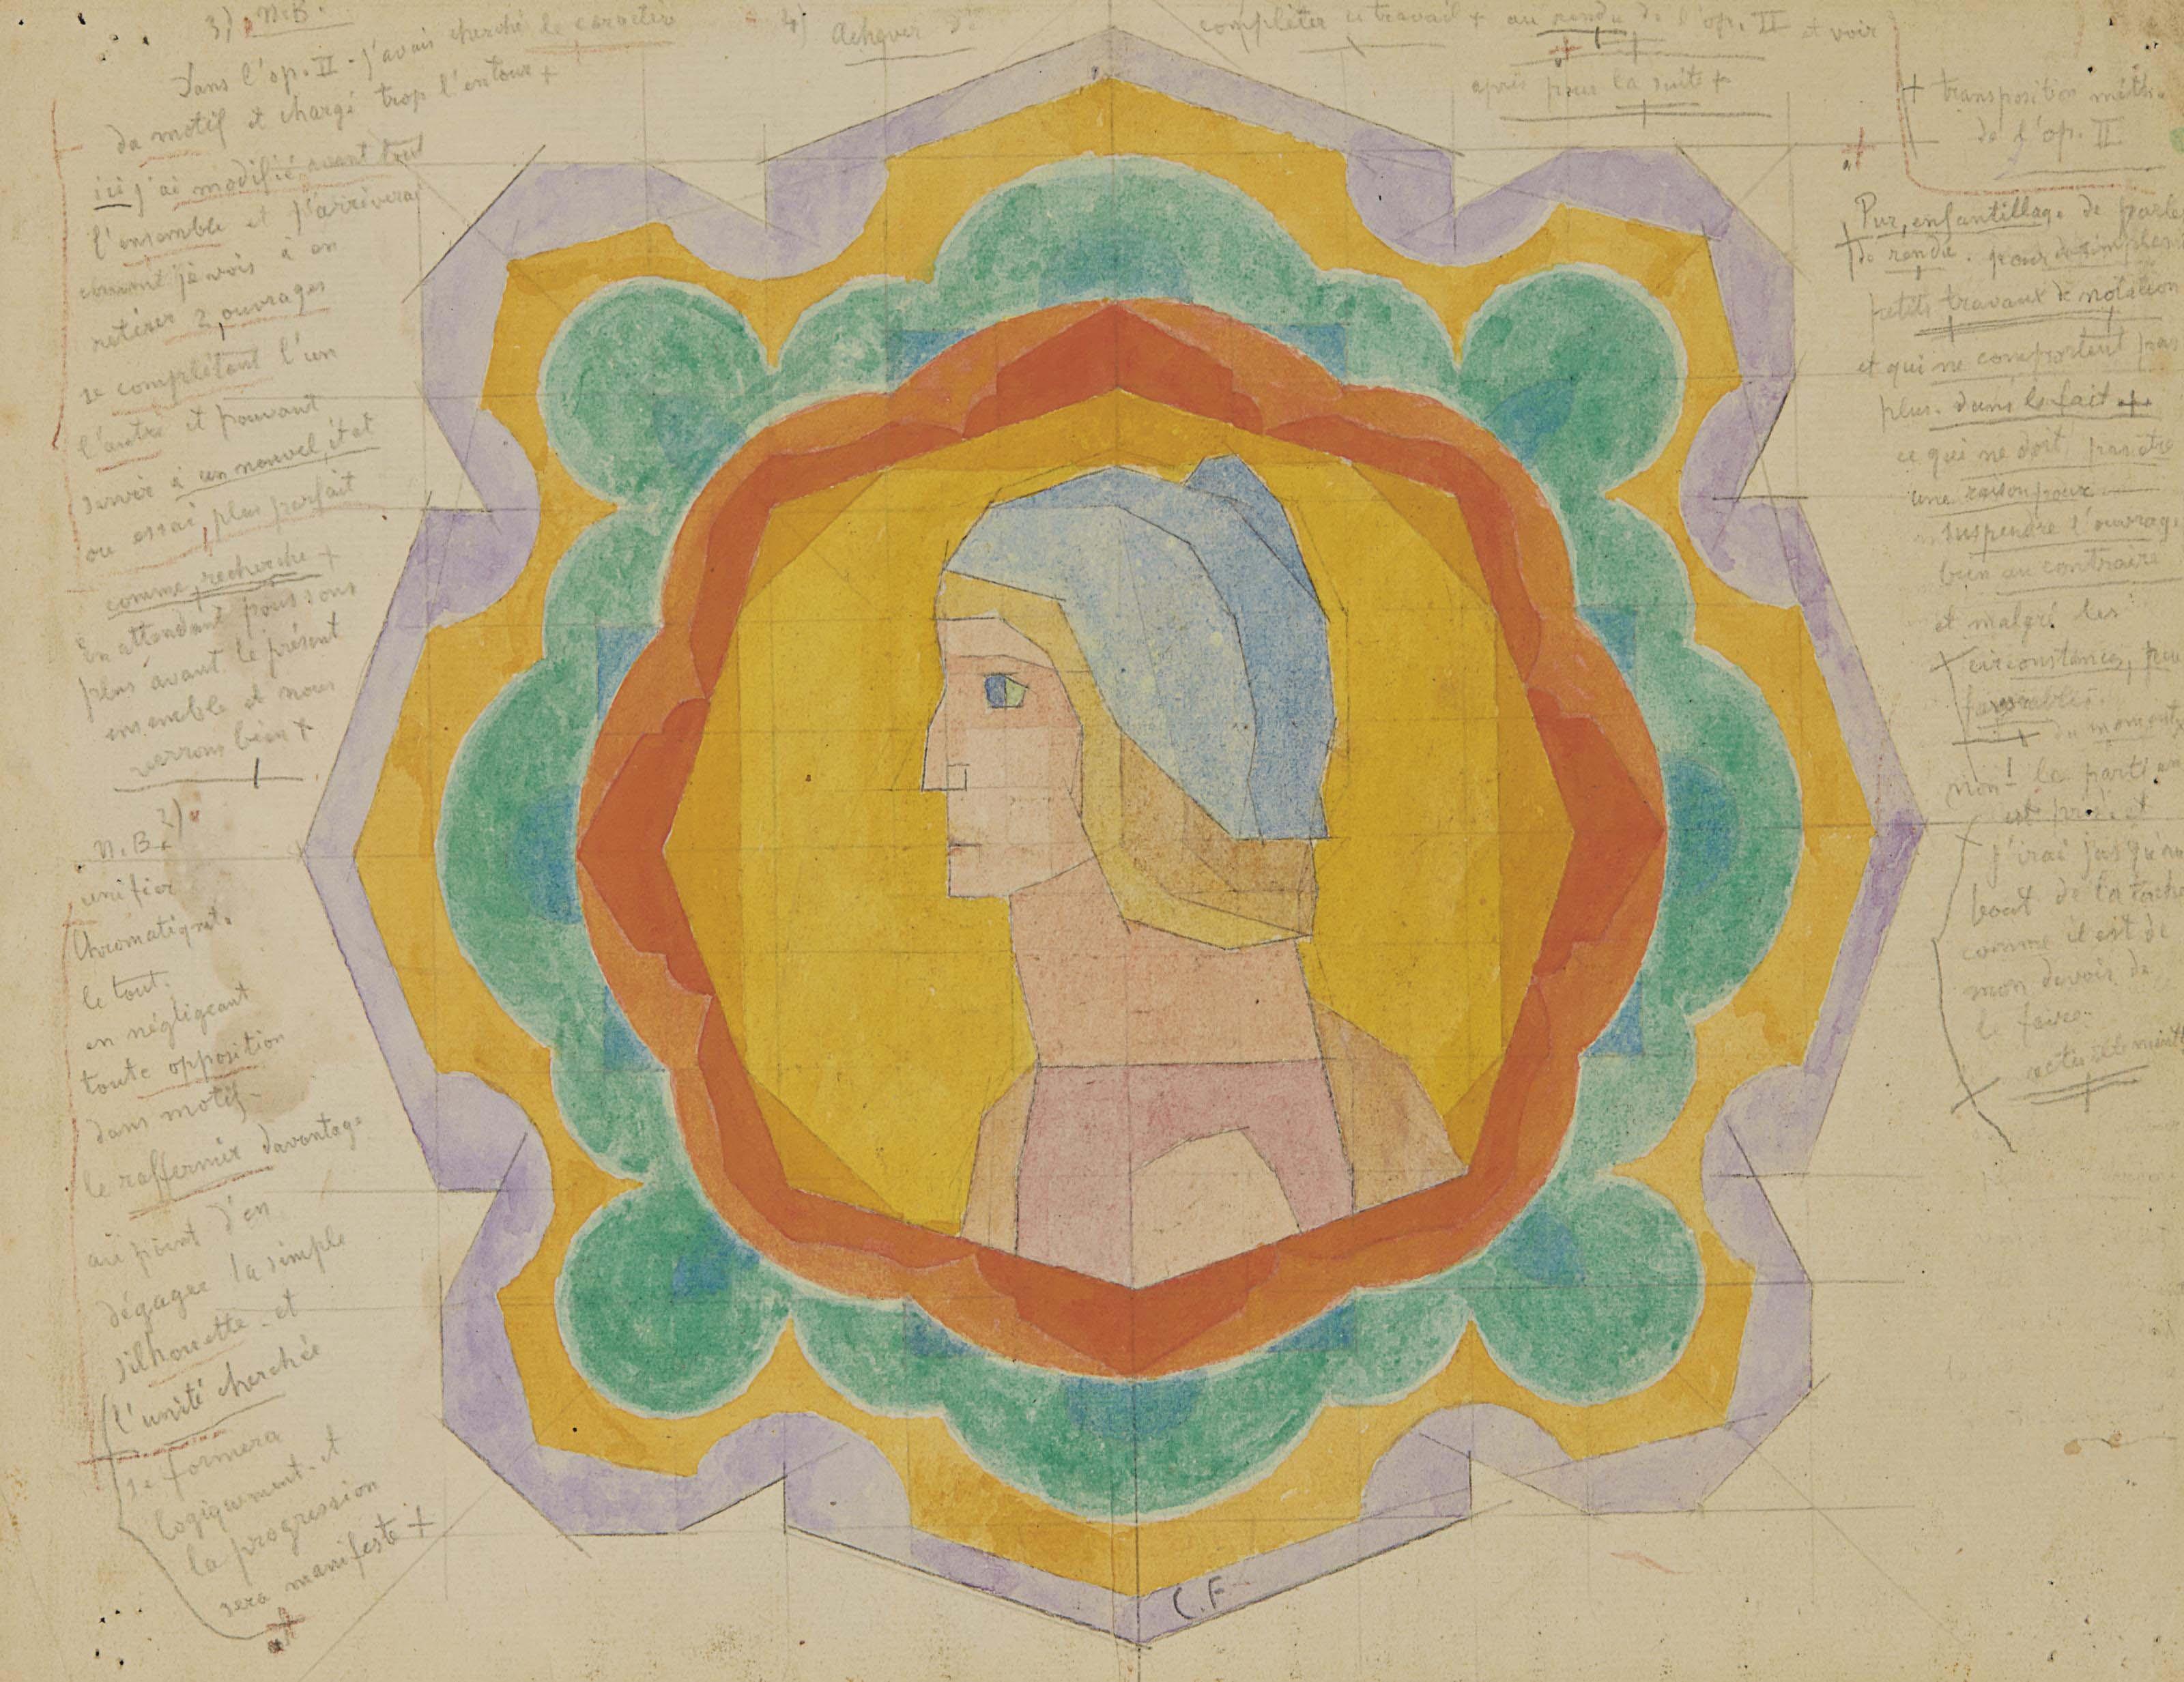 3) N.B.
Dans l'op. II - j'avais cherché le caractère
du motif et chargé trop l'entour +
ici j'ai modifié avant tout
l'ensemble et j'arriverai
comment je vois à en
retirer 2 ouvrages
se complétant l'un
l'autre et pouvant
servir à un nouvel état
ou essai, plus parfait
comme recherche +
En attendant poussons
plus avant le présent
ensemble et nous
verrons bien +
N.B. 2)
unifier
Chromatiqmt.
le tout.
en négligeant
toute opposition
dans motif -
le raffermir davantage
au point d'en
dégager la simple
silhouette - et
l'unité cherchée
se formera
logiquement - et
la progression
sera manifeste +
4) Achever de
compléter ce travail + au rendu de l'op. II et voir
après pour la suite +
+ transposition
de l'op. II
Pur enfantillage de parler
de rendu. pour de simples
petits travaux de notation
et qui ne comportent pas
plus. dans le fait +
ce qui ne doit pas être
une raison pour
suspendre l'ouvrage
bien au contraire
et malgré les
circonstances, peu
favorables.
du moment
non! le parti en
est pris. et
j'irai jusqu'au
bout de la tâche
comme il est de
mon devoir de
le faire.
C.F-